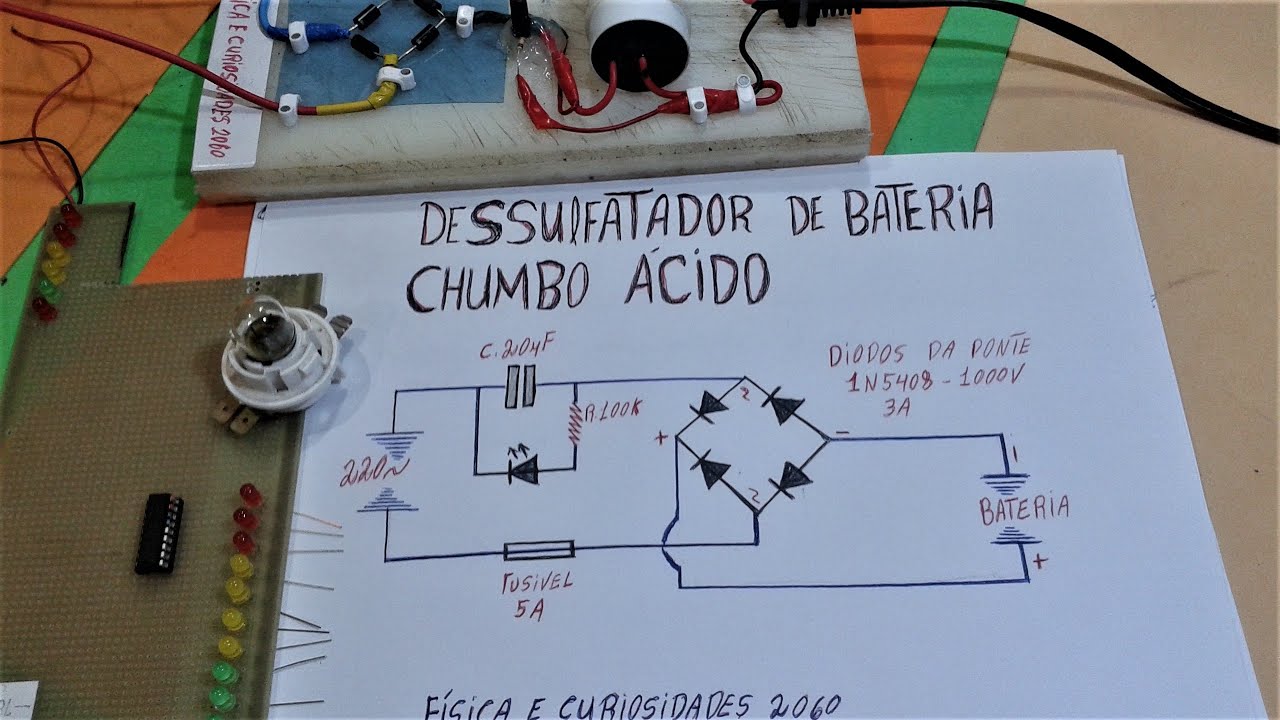 FÍSICA E CURIOSIDADES 2060
DESSULFATADOR DE BATERIA
CHUMBO ÁCIDO
C.20µF
DIODOS DA PONTE
1N5408-1000V
3A
R.100K
+
-
220~
BATERIA
+
FUSIVEL
5A
FÍSICA E CURIOSIDADES 2060